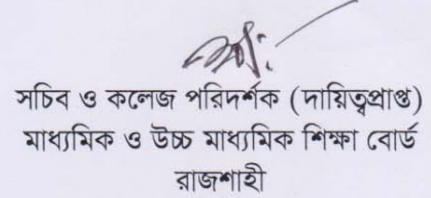 সচিব ও কলেজ পরিদর্শক (দায়িত্বপ্রাপ্ত)
মাধ্যমিক ও উচ্চ মাধ্যমিক শিক্ষা বোর্ড
রাজশাহী